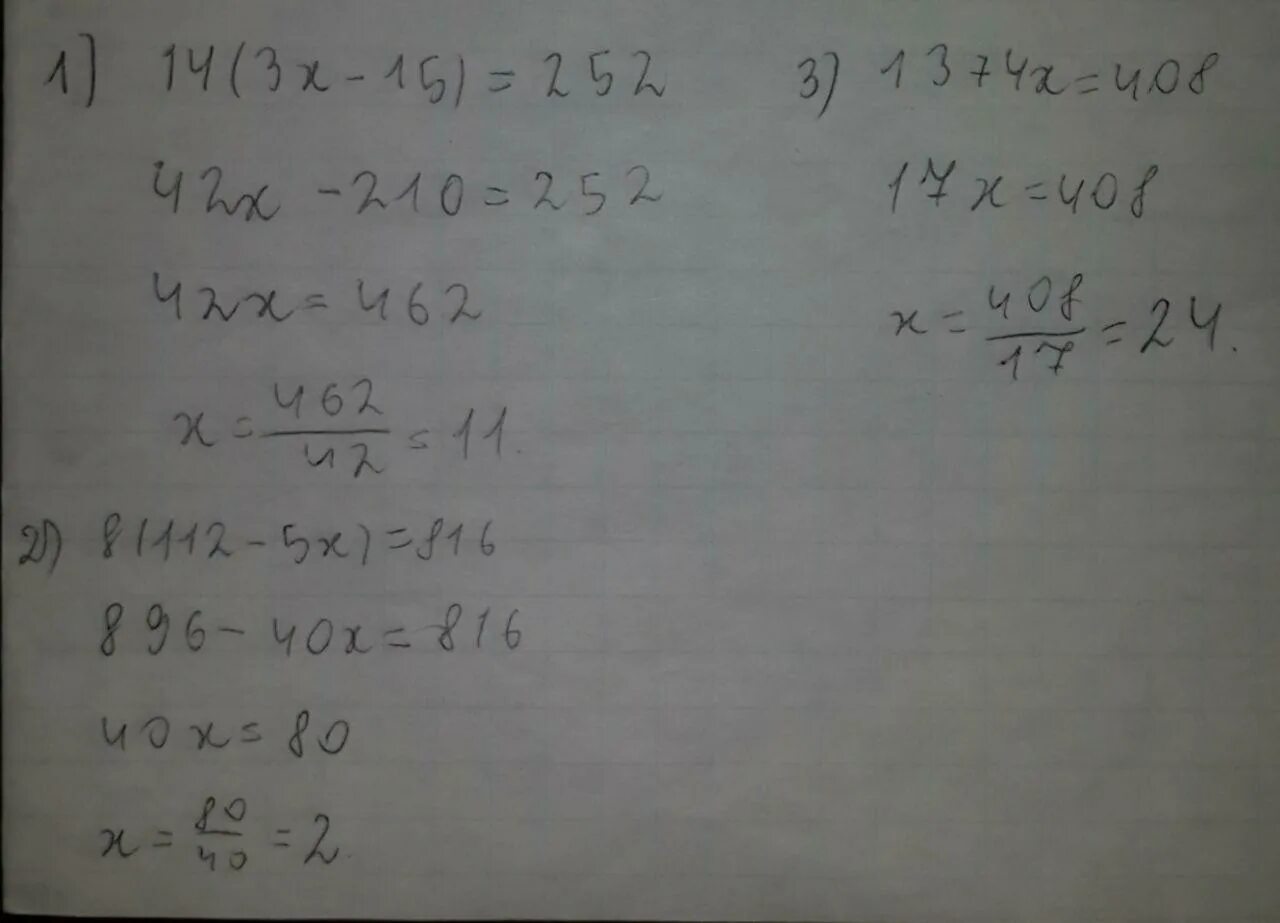 1) 14(3x-15)=252
42x-210=252
42x=462
x=462/42=11.
2) 8(112-5x)=816
896-40x=816
40x=80
x=80/40=2
3) 1374x=408
17x=408
x=408/17=24.